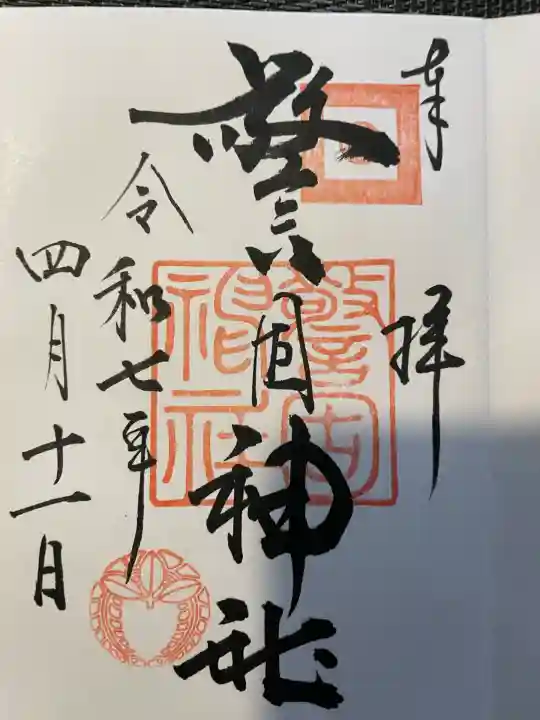 奉拝
警固神社
令和七年
四月十一日
警固
神社